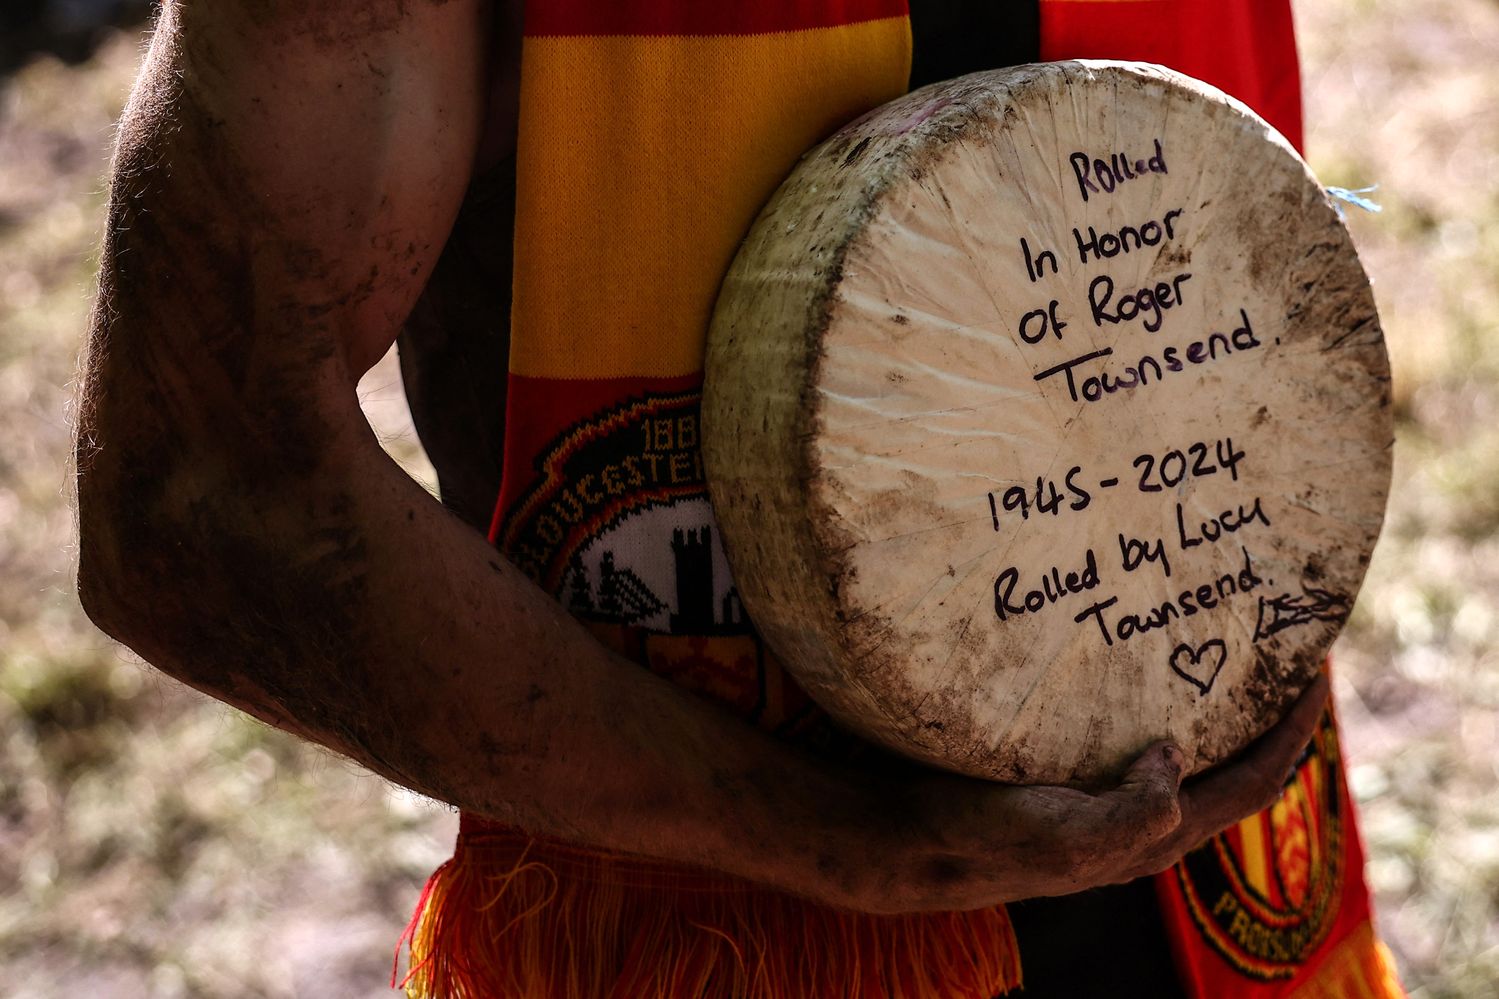 Rolled
In Honor
Of Roger
Townsend.
1945-2024
Rolled by Lucy
Townsend.
188
GLOUCESTE